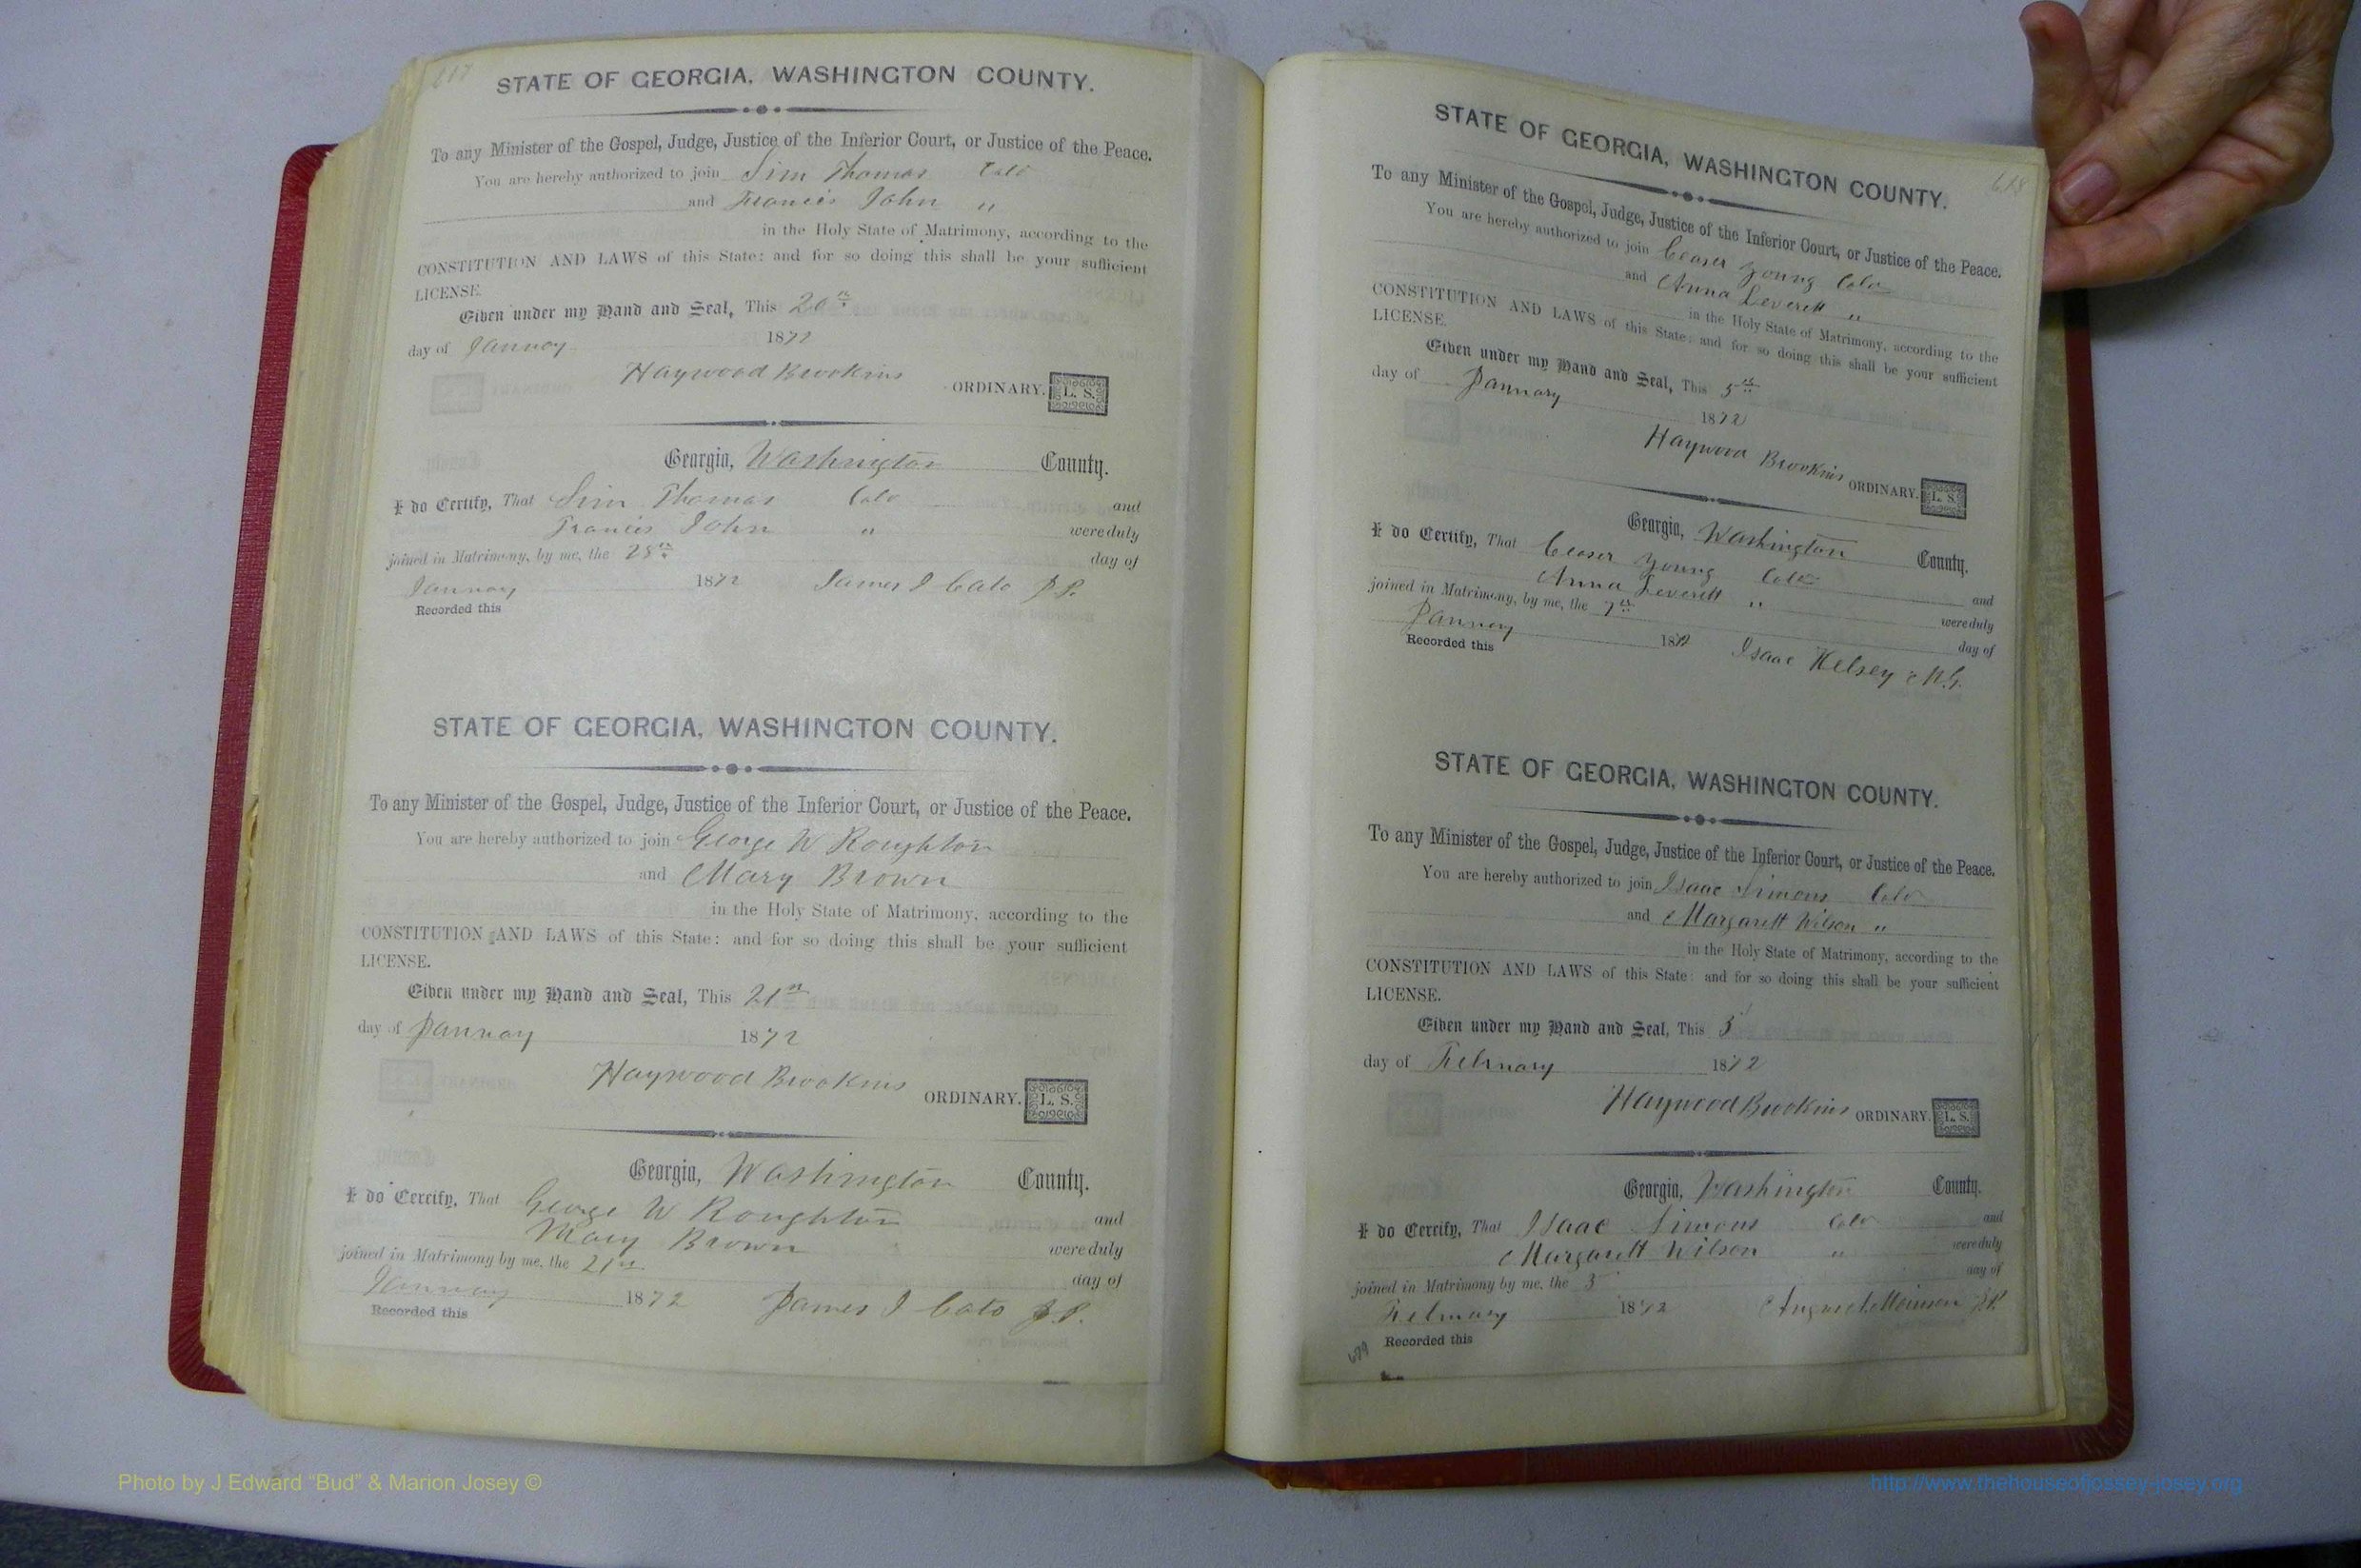 617
STATE OF GEORGIA, WASHINGTON COUNTY.
To any Minister of the Gospel, Judge, Justice of the Inferior Court, or Justice of the Peace.
You are hereby authorized to join Sim Thomas Cold
and Francis John "
in the Holy State of Matrimony, according to the
CONSTITUTION AND LAWS of this State: and for so doing this shall be your sufficient
LICENSE.
Given under my Hand and Seal, This 20th
day of January 1872
Haywood Brookins ORDINARY. L. S.
Georgia, Washington County.
I do Certify, That Sim Thomas Cold and
Francis John " were duly
joined in Matrimony, by me, the 28th day of
January 1872 James I Cato J.P.
Recorded this
STATE OF GEORGIA, WASHINGTON COUNTY.
To any Minister of the Gospel, Judge, Justice of the Inferior Court, or Justice of the Peace.
You are hereby authorized to join George W Roughton
and Mary Brown
in the Holy State of Matrimony, according to the
CONSTITUTION AND LAWS of this State: and for so doing this shall be your sufficient
LICENSE.
Given under my Hand and Seal, This 21st
day of January 1872
Haywood Brookins ORDINARY. L. S.
Georgia, Washington County.
I do Certify, That George W Roughton and
Mary Brown were duly
joined in Matrimony by me, the 21st day of
January 1872 James I Cato J.P.
Recorded this
618
STATE OF GEORGIA, WASHINGTON COUNTY.
To any Minister of the Gospel, Judge, Justice of the Inferior Court, or Justice of the Peace.
You are hereby authorized to join Ceaser Young Cold
and Anna Leverett "
in the Holy State of Matrimony, according to the
CONSTITUTION AND LAWS of this State: and for so doing this shall be your sufficient
LICENSE.
Given under my Hand and Seal, This 5th
day of January 1872
Haywood Brookins ORDINARY. L. S.
Georgia, Washington County.
I do Certify, That Ceaser Young Cold and
Anna Leverett " were duly
joined in Matrimony, by me, the 7th day of
January 1872 Isaac Kelsey M.G.
Recorded this
STATE OF GEORGIA, WASHINGTON COUNTY.
To any Minister of the Gospel, Judge, Justice of the Inferior Court, or Justice of the Peace.
You are hereby authorized to join Isaac Simons Cold
and Margarett Wilson "
in the Holy State of Matrimony, according to the
CONSTITUTION AND LAWS of this State: and for so doing this shall be your sufficient
LICENSE.
Given under my Hand and Seal, This 3
day of February 1872
Haywood Brookins ORDINARY. L. S.
Georgia, Washington County.
I do Certify, That Isaac Simons Cold and
Margarett Wilson " were duly
joined in Matrimony by me, the 3 day of
February 1872 J.P.
Recorded this
Photo by J Edward “Bud” & Marion Josey ©
http://www.thehouseofjossey-josey.org